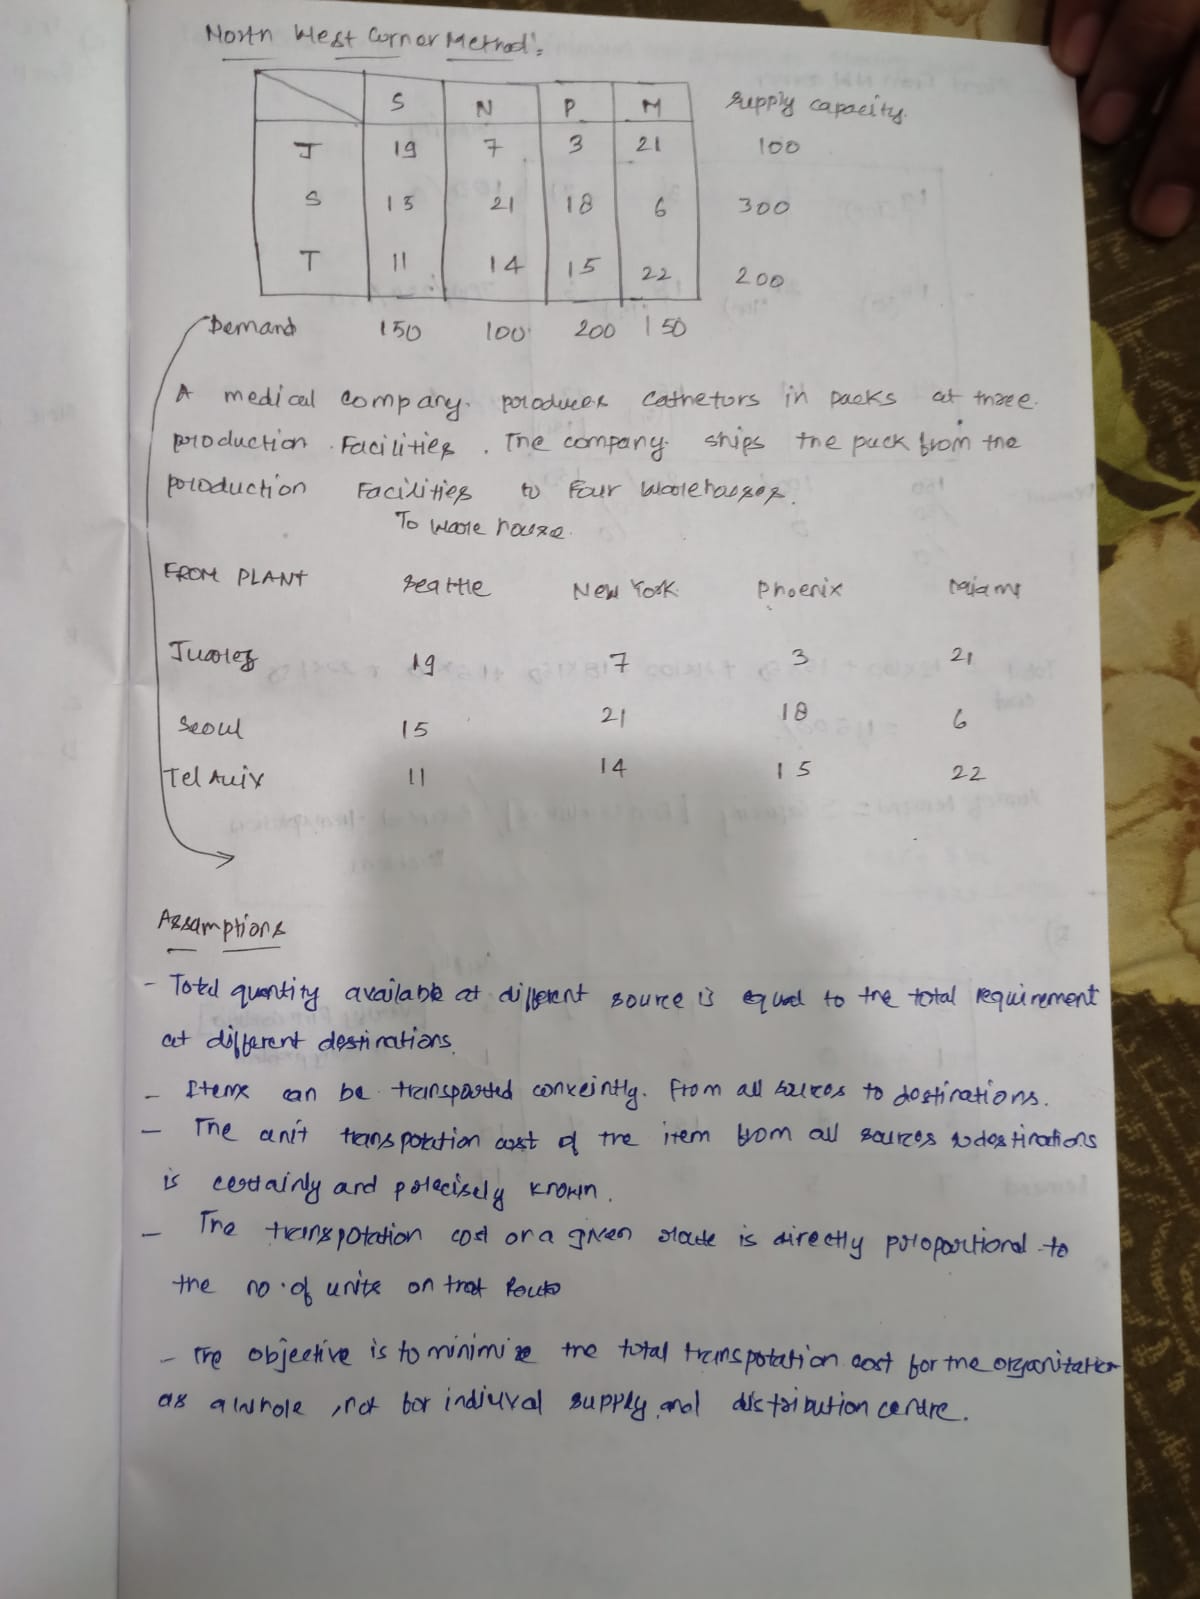 North West Corner Method:
S N P M Supply capacity.
J 19 7 3 21 100
S 15 21 18 6 300
T 11 14 15 22 200
Demand 150 100 200 150
A medical company. produces cathetors in packs at three.
production Facilities. The company ships the pack from the
production Facilities to four warehouses.
To ware house.
FROM PLANT Seattle New York Phoenix Miami
Juarez 19 7 3 21
Seoul 15 21 18 6
Tel Aviv 11 14 15 22
Assamptions
- Total quantity available at different source is equal to the total requirement
at different destinations.
- Items can be transported conveintly. from all sources to destinations.
- The unit transpotation cost of the item from all sources to destinations
is certainly and precisely known.
- The transpotation cost or a given route is directly proportional to
the no. of units on that Route
- The objective is to minimize the total transpotation cost for the organization
as a whole, not for indiuval supply and distribution centre.